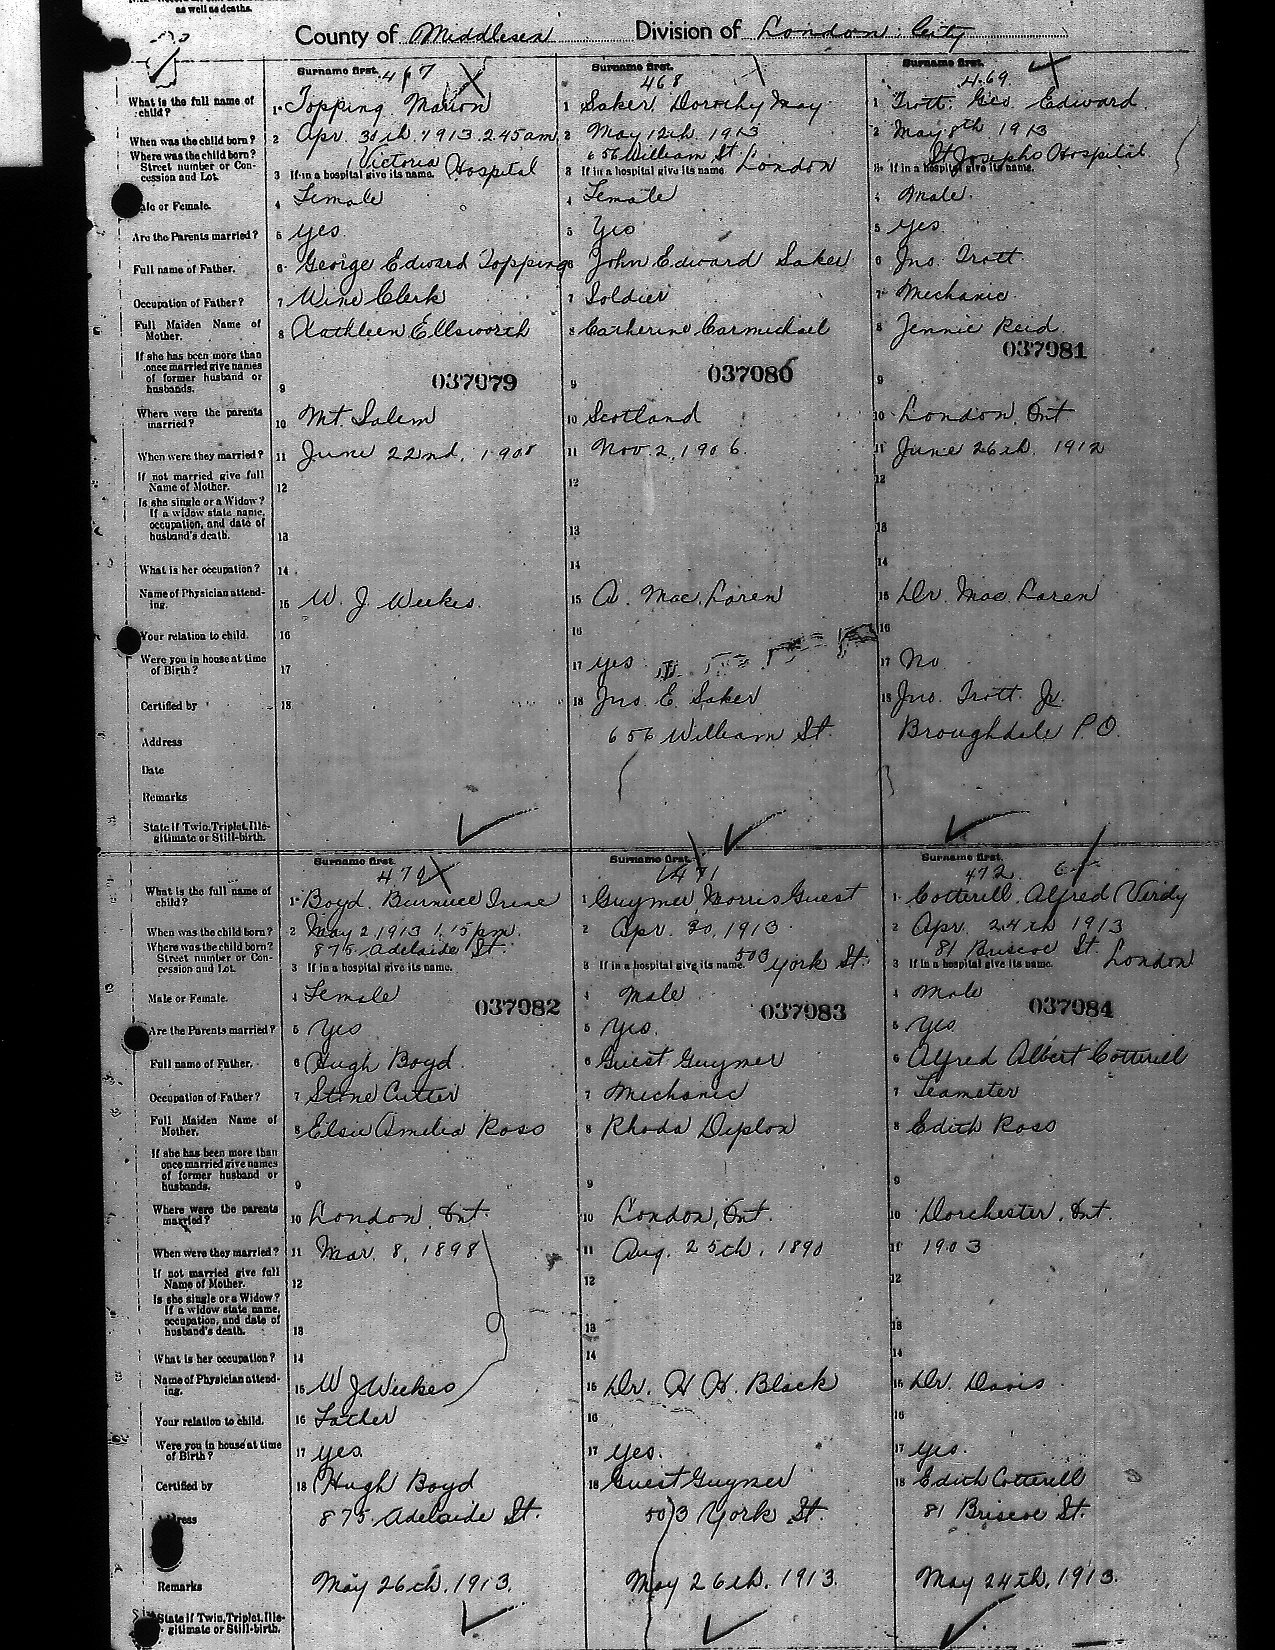 as well as deaths.
County of Middlesex Division of London City
Surname first. 467
Surname first. 468
Surname first. 469
What is the full name of child?
1 Topping Marion
1 Saker, Dorothy May
1 Trott. Geo Edward
When was the child born?
2 Apr. 30th, 1913 2.45 am
2 May 12th, 1913
2 May 8th 1913
Where was the child born? Street number or Concession and Lot.
3 If in a hospital give its name. Victoria Hospital
3 If in a hospital give its name 656 William St London
3 If in a hospital give its name. St Josephs Hospital
Male or Female.
4 Female
4 Female
4 Male.
Are the Parents married?
5 yes
5 Yes
5 yes
Full name of Father.
6 George Edward Topping
6 John Edward Saker
6 Jno. Trott
Occupation of Father?
7 Wine Clerk
7 Soldier
7 Mechanic
Full Maiden Name of Mother.
8 Kathleen Ellsworth
8 Catherine Carmichael
8 Jennie Reid
If she has been more than once married give names of former husband or husbands.
9 037079
9 037080
9 037081
Where were the parents married?
10 Mt. Salem
10 Scotland
10 London, Ont
When were they married?
11 June 22nd, 1908
11 Nov 2, 1906
11 June 26th, 1912
If not married give full Name of Mother.
12
12
12
Is she single or a Widow? If a widow state name, occupation, and date of husband's death.
13
13
13
What is her occupation?
14
14
14
Name of Physician attending.
15 W. J Weekes.
15 A. MacLaren
15 Dr. MacLaren
Your relation to child.
16
16
16
Were you in house at time of Birth?
17
17 yes
17 No
Certified by
18
18 Jno. E. Saker
18 Jno. Trott Jr.
Address
656 William St.
Broughdale P.O.
Date
Remarks
State if Twin, Triplet, Illegitimate or Still-birth.
Surname first. 470
Surname first. 471
Surname first. 472
What is the full name of child?
1 Boyd. Burnuce Irene
1 Guymer, Morris Guest
1 Cotterill. Alfred Verdy
When was the child born?
2 May 2, 1913 1.15 pm.
2 Apr. 30, 1913
2 Apr. 24th 1913
Where was the child born? Street number or Concession and Lot.
875 Adelaide St.
3 If in a hospital give its name.
3 If in a hospital give its name. 503 York St.
81 Briscoe St. London
3 If in a hospital give its name.
Male or Female.
4 Female 037082
4 Male 037083
4 Male 037084
Are the Parents married?
5 Yes
5 Yes.
5 Yes
Full name of Father.
6 Hugh Boyd.
6 Guest Guymer
6 Alfred Albert Cotterill
Occupation of Father?
7 Stone Cutter
7 Mechanic
7 Teamster
Full Maiden Name of Mother.
8 Elsie Amelia Ross
8 Rhoda Diplon
8 Edith Ross
If she has been more than once married give names of former husband or husbands.
9
9
9
Where were the parents married?
10 London, Ont.
10 London, Ont.
10 Dorchester, Ont.
When were they married?
11 Mar. 8, 1898
11 Aug. 25th, 1890
11 1903
If not married give full Name of Mother.
12
12
12
Is she single or a Widow? If a widow state name, occupation, and date of husband's death.
13
13
13
What is her occupation?
14
14
14
Name of Physician attending.
15 W J Weekes
15 Dr. H H. Black
15 Dr. Davis
Your relation to child.
16 Father
16
16
Were you in house at time of Birth?
17 yes.
17 yes.
17 yes.
Certified by
18 Hugh Boyd
18 Guest Guymer
18 Edith Cotterill
875 Adelaide St.
503 York St.
81 Briscoe St.
Remarks
May 26th, 1913.
May 26th, 1913.
May 24th, 1913.
State if Twin, Triplet, Illegitimate or Still-birth.